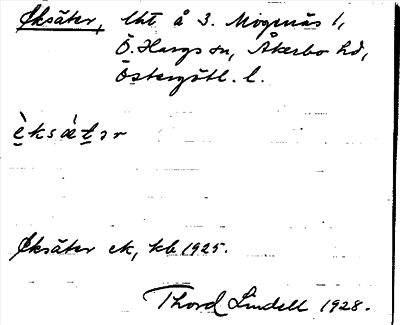 Eksäter, lht å 3. Mogemäs 1,
Ö. Hargs sn, Åkerbo hd,
Östergötl. l.
èksǽtər
Eksäter ek, kb 1925.
Thord Lindell 1928.